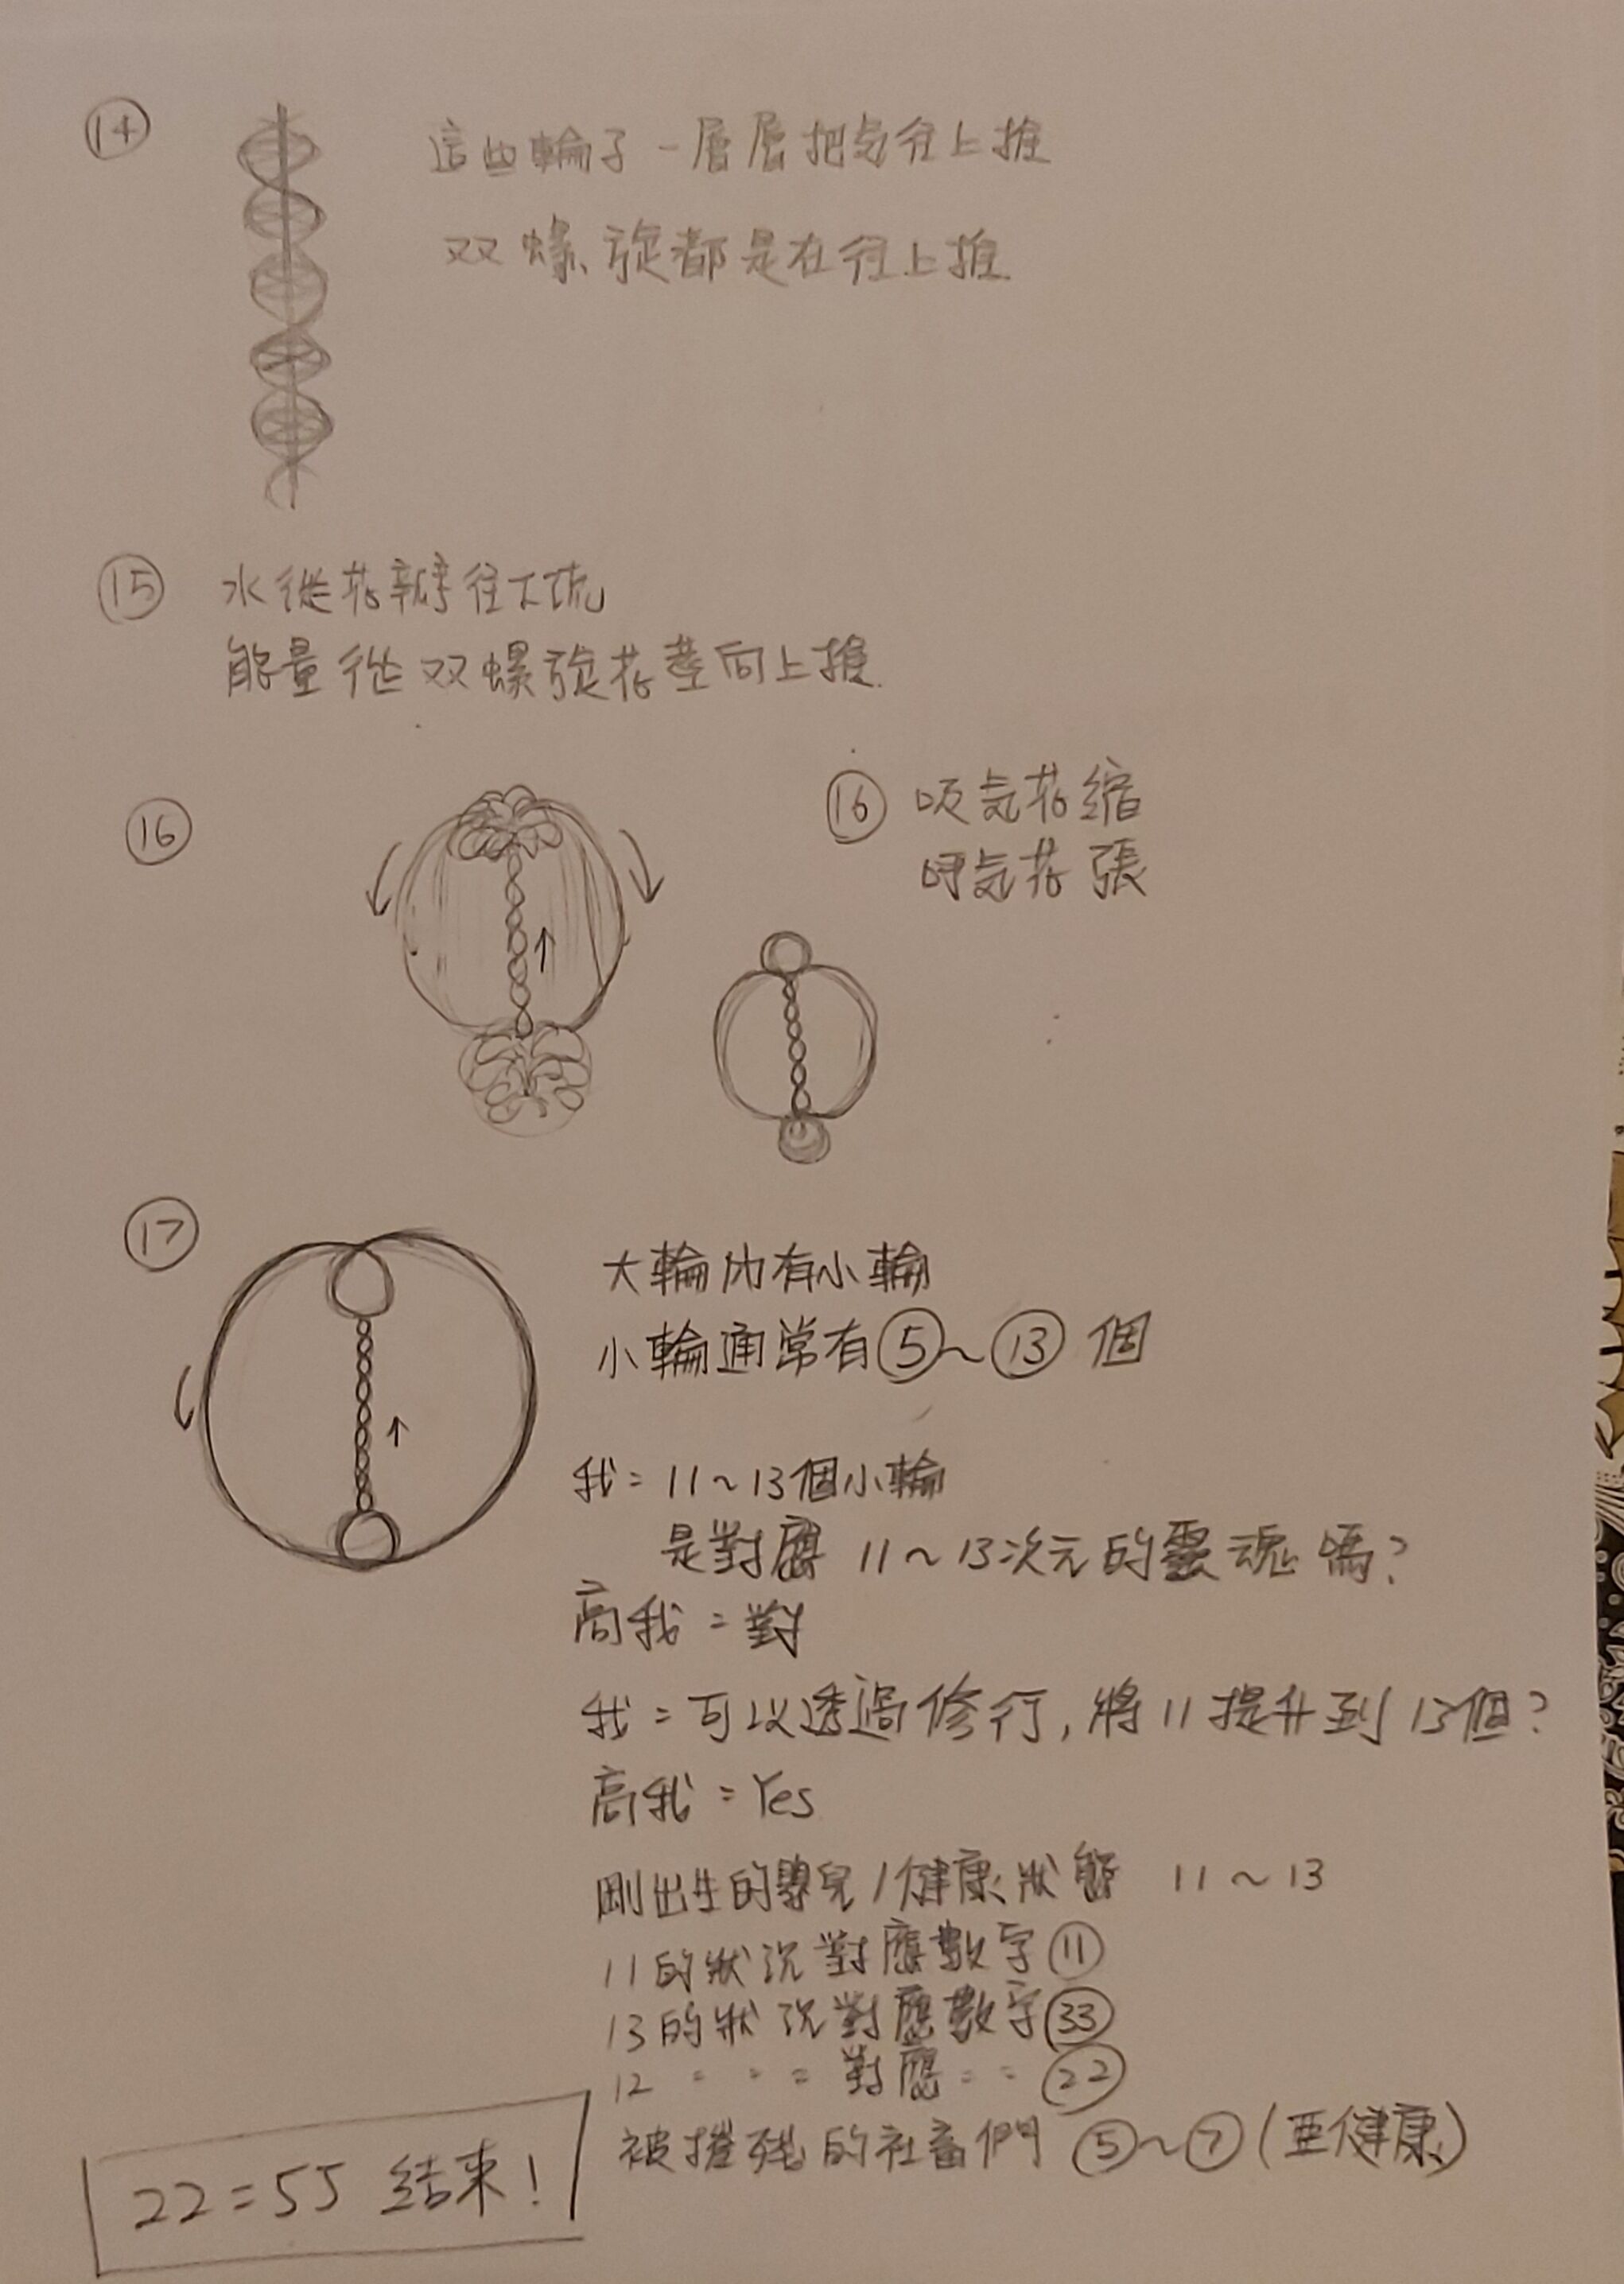 ⑭
這些輪子一層層把気往上推
双螺旋都是在往上推
⑮ 水從花瓣往下流
能量從双螺旋花莖向上推
⑯
⑯ 吸気花縮
呼気花張
⑰
大輪內有小輪
小輪通常有⑤~⑬個
我=11~13個小輪
是對應 11~13次元的靈魂嗎?
高我=對
我=可以透過修行,將11提升到13個?
高我=Yes
剛出生的嬰兒/健康狀態 11~13
11的狀況對應數字⑪
13的狀況對應數字㉝
12 〃 〃 〃 對應 〃 〃 ㉒
被摧殘的社畜們 ⑤~⑦(亜健康)
22=55 結束!